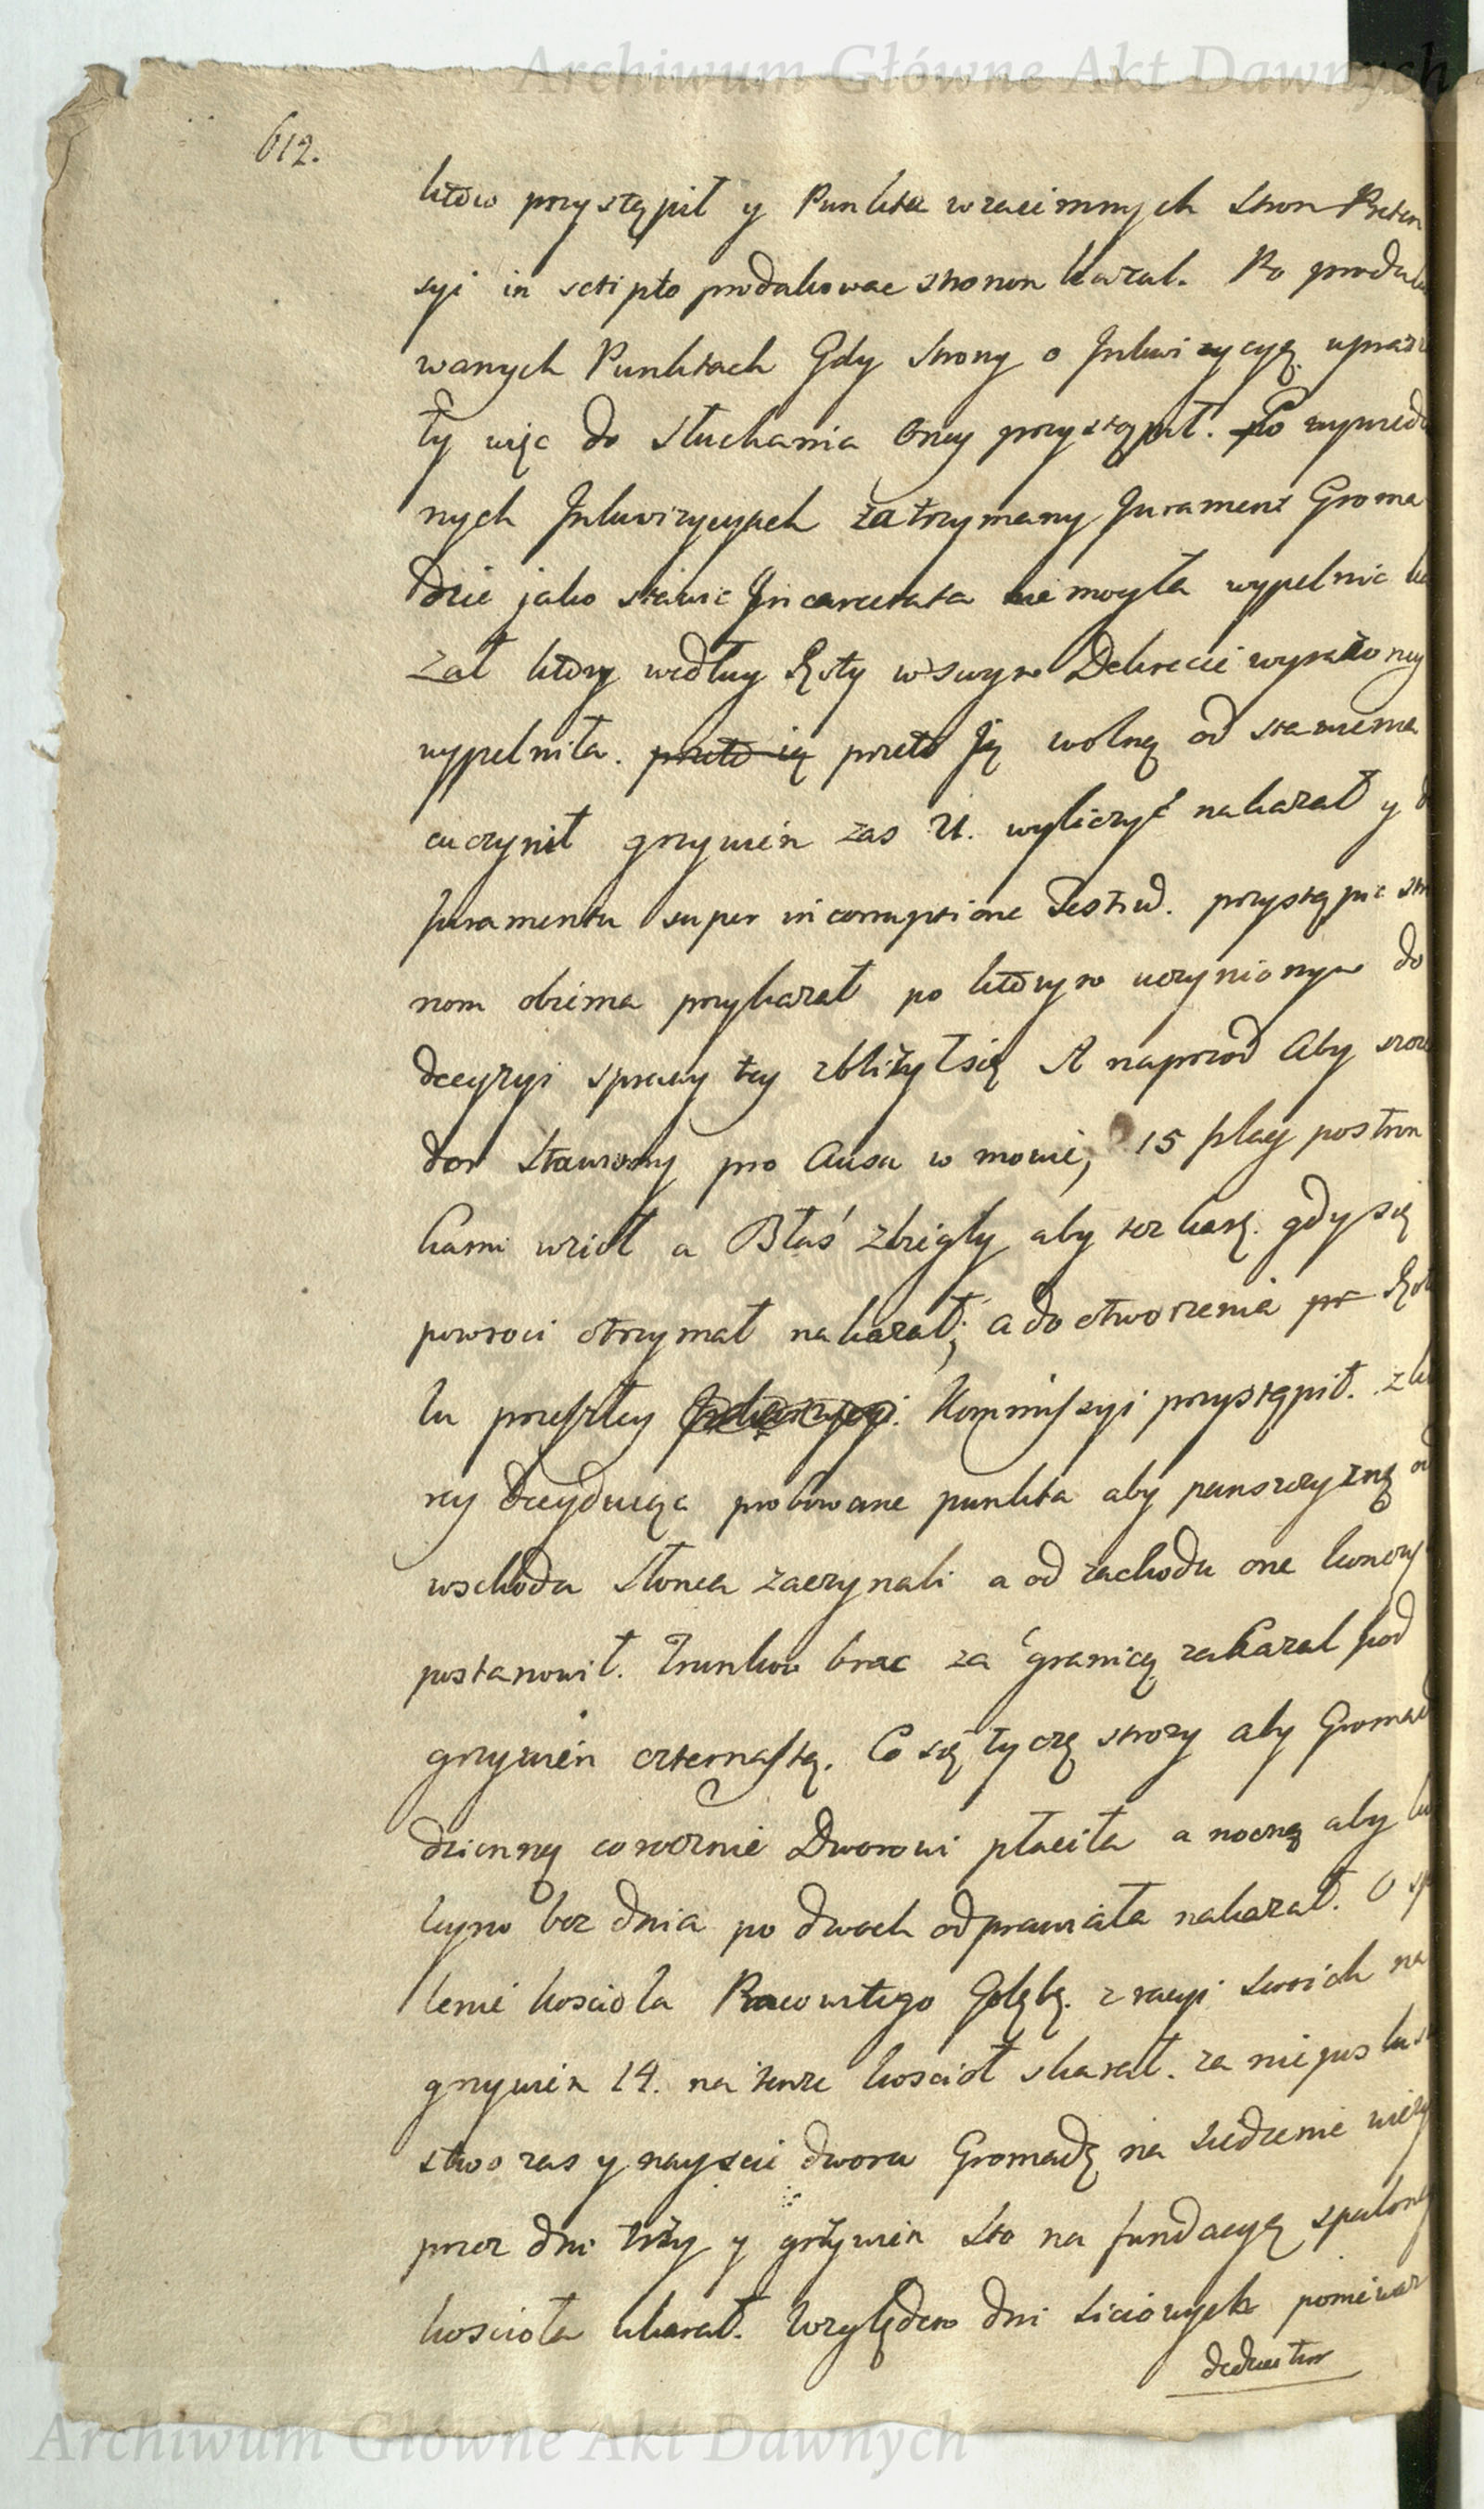 Archiwum Główne Akt Dawnych
612.
któw przystąpił y Punkta wzaiemnych stron Preten
syi in scripto produkować stronom kazał. Po produko
wanych Punktach Gdy strony o Inkwizycyą uprasza
ły więc do słuchania oney przystąpił. Po wyprowadzo
nych Inkwizycyach zatrzymany Jurament Groma
dzie jako stawic Incarcerata nie mogła wypełnic ka
zał który według Roty w swym Dekrecie wyrażoney
wypełniła. przeto ią przeto Ją wolną od stawienia
uczynił grzywien zas 14. wyliczyć nakazał y do
Juramentu super incorruptione Testiu. przystąpic stro
nom obiema przykazał po którym uczynionym do
decyzyi sprawy tey zbliżył się A naprzod Aby
dor stawiony pro Ausu w mowie, 15 plag postron
kami wziął a Błaś zbiegły aby toz karę. gdy się
powroci otrzymał nakazał; a do otworzenia
lu przeszłey Kommissyi przystąpił. z któ
rey decyduiąc probowane punkta aby panszczyznę od
wschoda słonca zaczynali a od zachodu one konczyli
postanowił. Trunkow brac za granicą zakazał pod
grzywien czternastą. Co się tyczę strozy aby Gromada
dzienną corocznie Dworowi płaciła a nocną aby
bez dnia po dwoch odprawiała nakazał. O spa
lenie koscioła Pracowitego Gołębę. z racyi swoich na
grzywien 14. na tenze koscioł skazał. za nieposłuszeń
stwo zas y nayscie dworu Gromadę na siedzenie wieży
przez dni trzy y grzywien sto na fundacyą spalonego
koscioła skazał. Względem dni poniewaz
Archiwum Główne Akt Dawnych